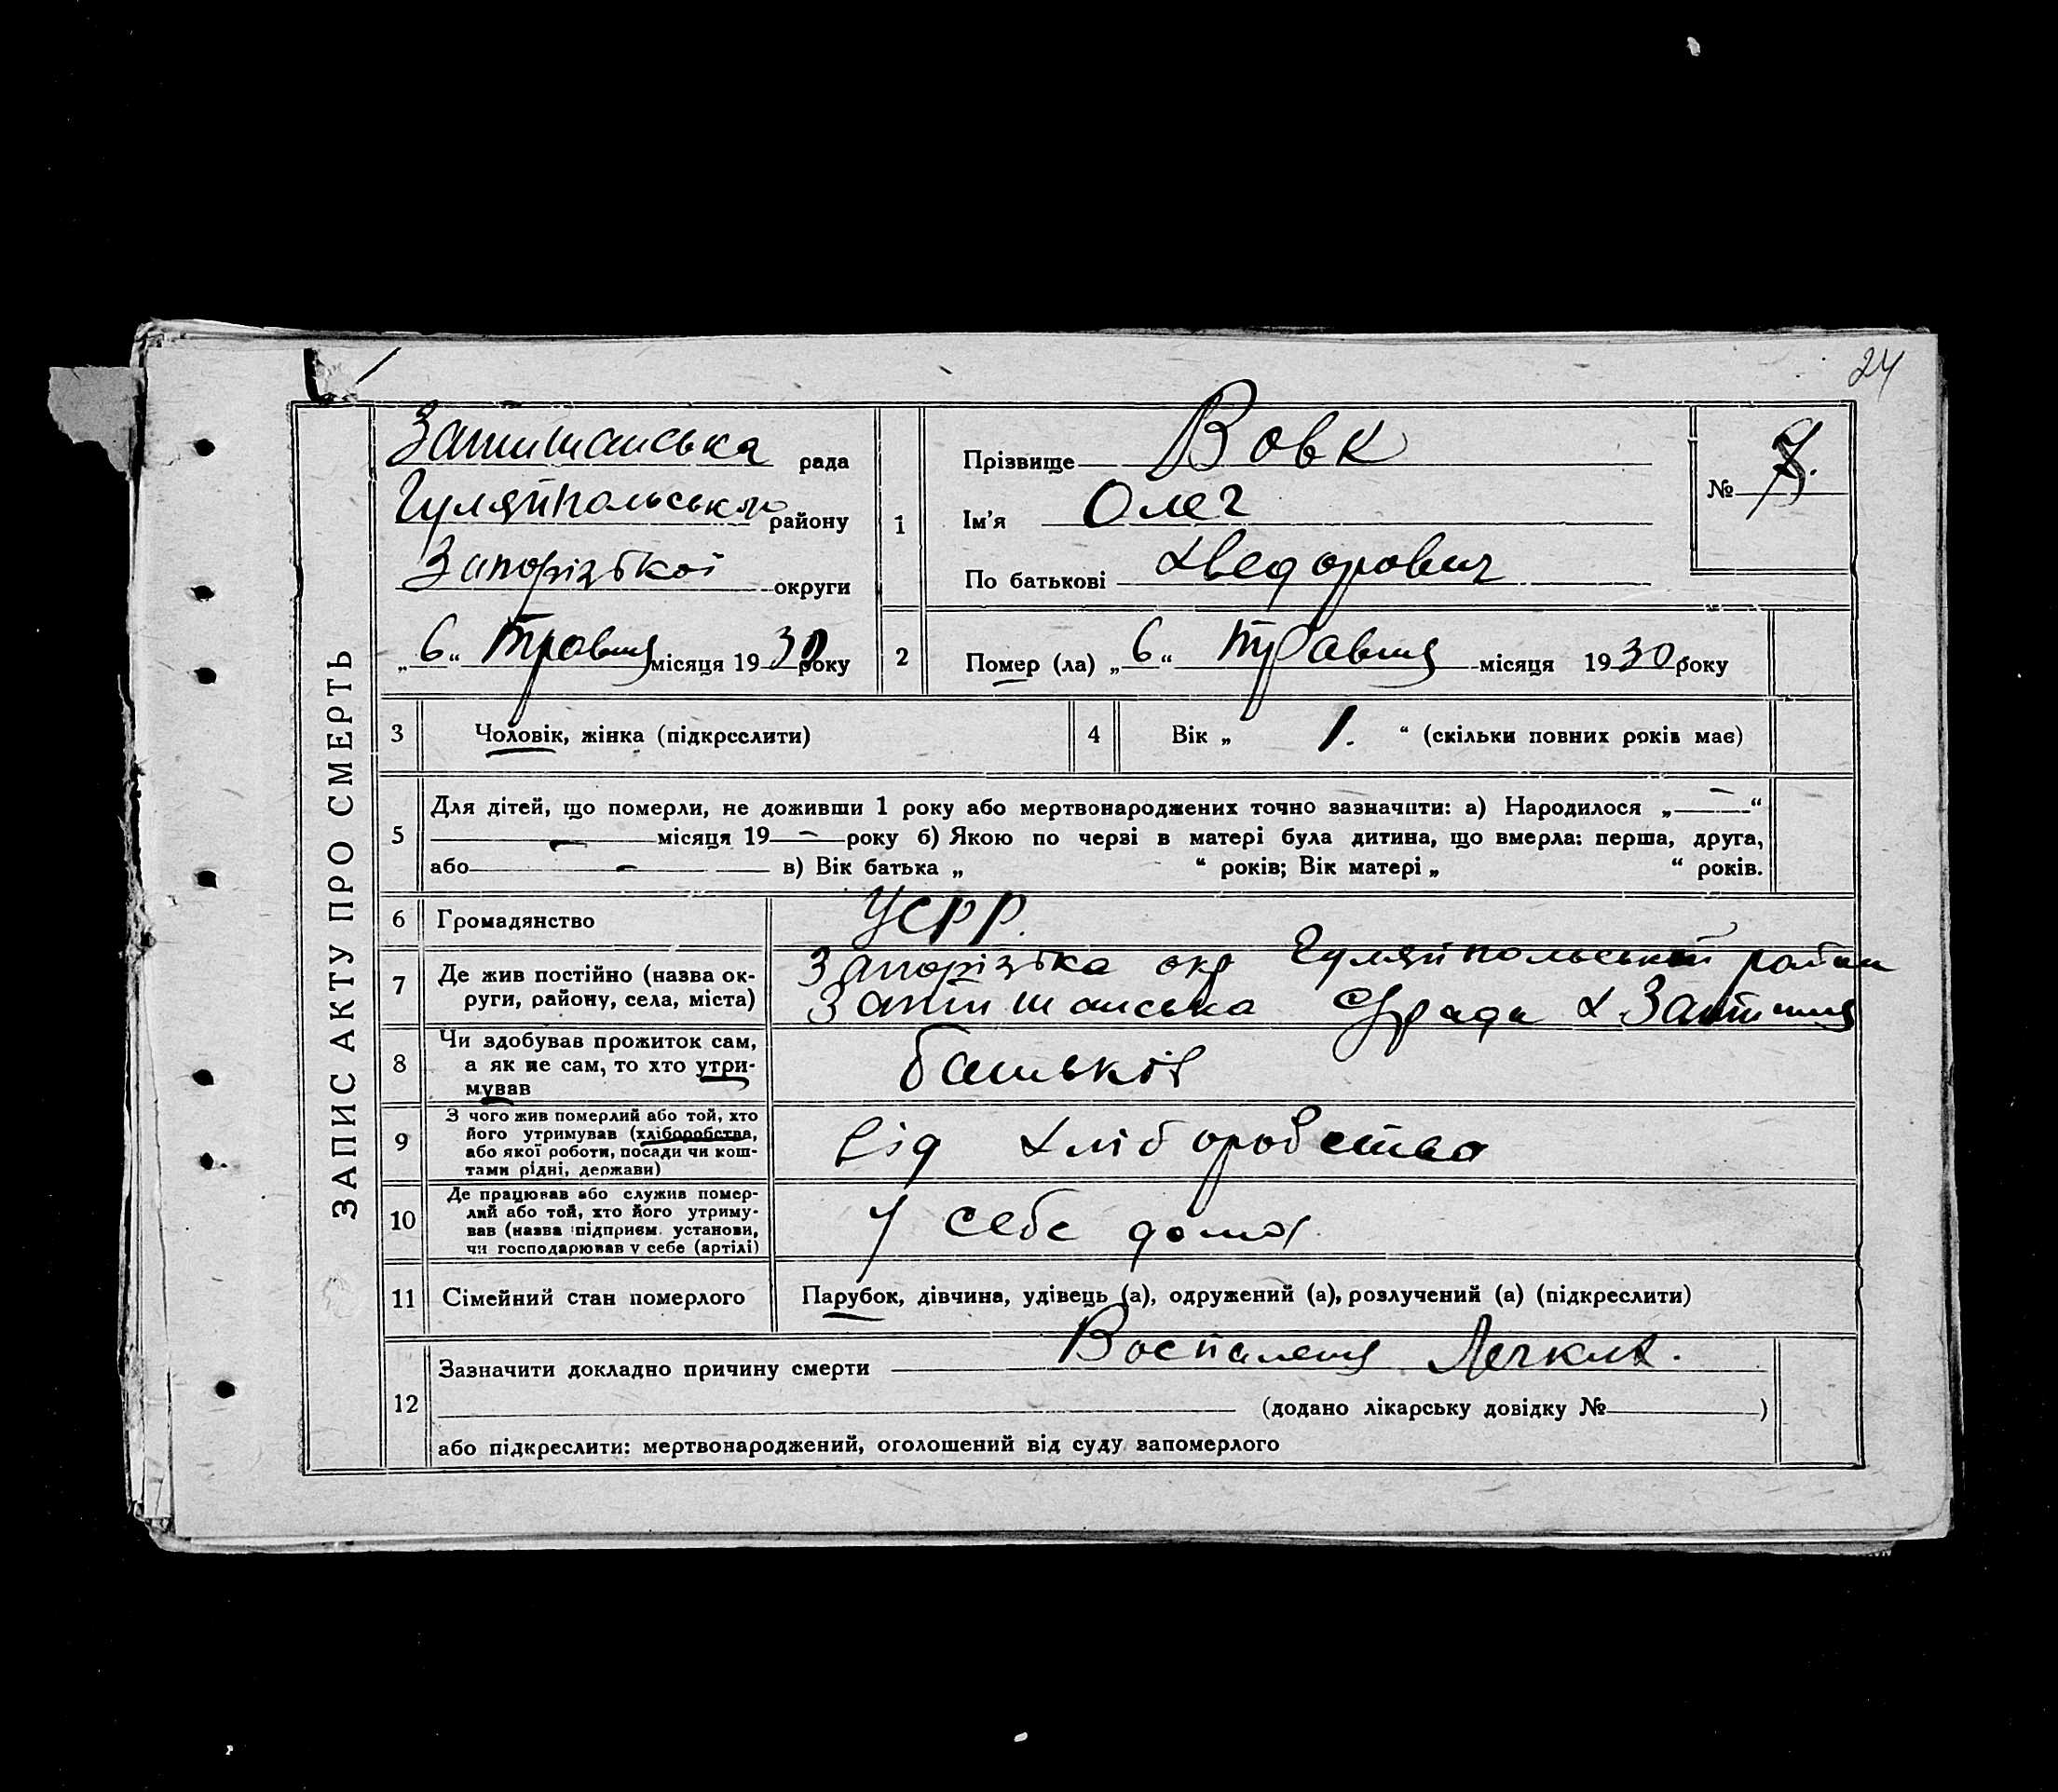 24
ЗАПИС АКТУ ПРО СМЕРТЬ
Затишанська рада
Гуляйпольського району
Запорізької округи
„6“ Травня місяця 1930 року
1
Прізвище Вовк
Ім'я Олег
По батькові Хведорович
№
2
Помер (ла) „6“ травня місяця 1930 року
3
Чоловік, жінка (підкреслити)
4
Вік „ 1. “ (скільки повних років має)
5
Для дітей, що померли, не доживши 1 року або мертвонароджених точно зазначити: а) Народилося „—“
— місяця 19 — року б) Якою по черзі в матері була дитина, що вмерла: перша, друга,
або — в) Вік батька „ “ років; Вік матері „ “ років.
6
Громадянство
УСРР.
7
Де жив постійно (назва ок-
руги, району, села, міста)
Запорізька окр Гуляйпольський район
Затишанська С/рада х Затишшя
8
Чи здобував прожиток сам,
а як не сам, то хто утри-
мував
батьків
9
З чого жив померлий або той, хто
його утримував (хліборобства,
або якої роботи, посади чи кош-
тами рідні, держави)
від хліборобства
10
Де працював або служив помер-
лий або той, хто його утриму-
вав (назва підприєм. установи,
чи господарював у себе (артілі)
У себе дома
11
Сімейний стан померлого
Парубок, дівчина, удівець (а), одружений (а), розлучений (а) (підкреслити)
12
Зазначити докладно причину смерти Воспаленя Легких.
(додано лікарську довідку № )
або підкреслити: мертвонароджений, оголошений від суду запомерлого